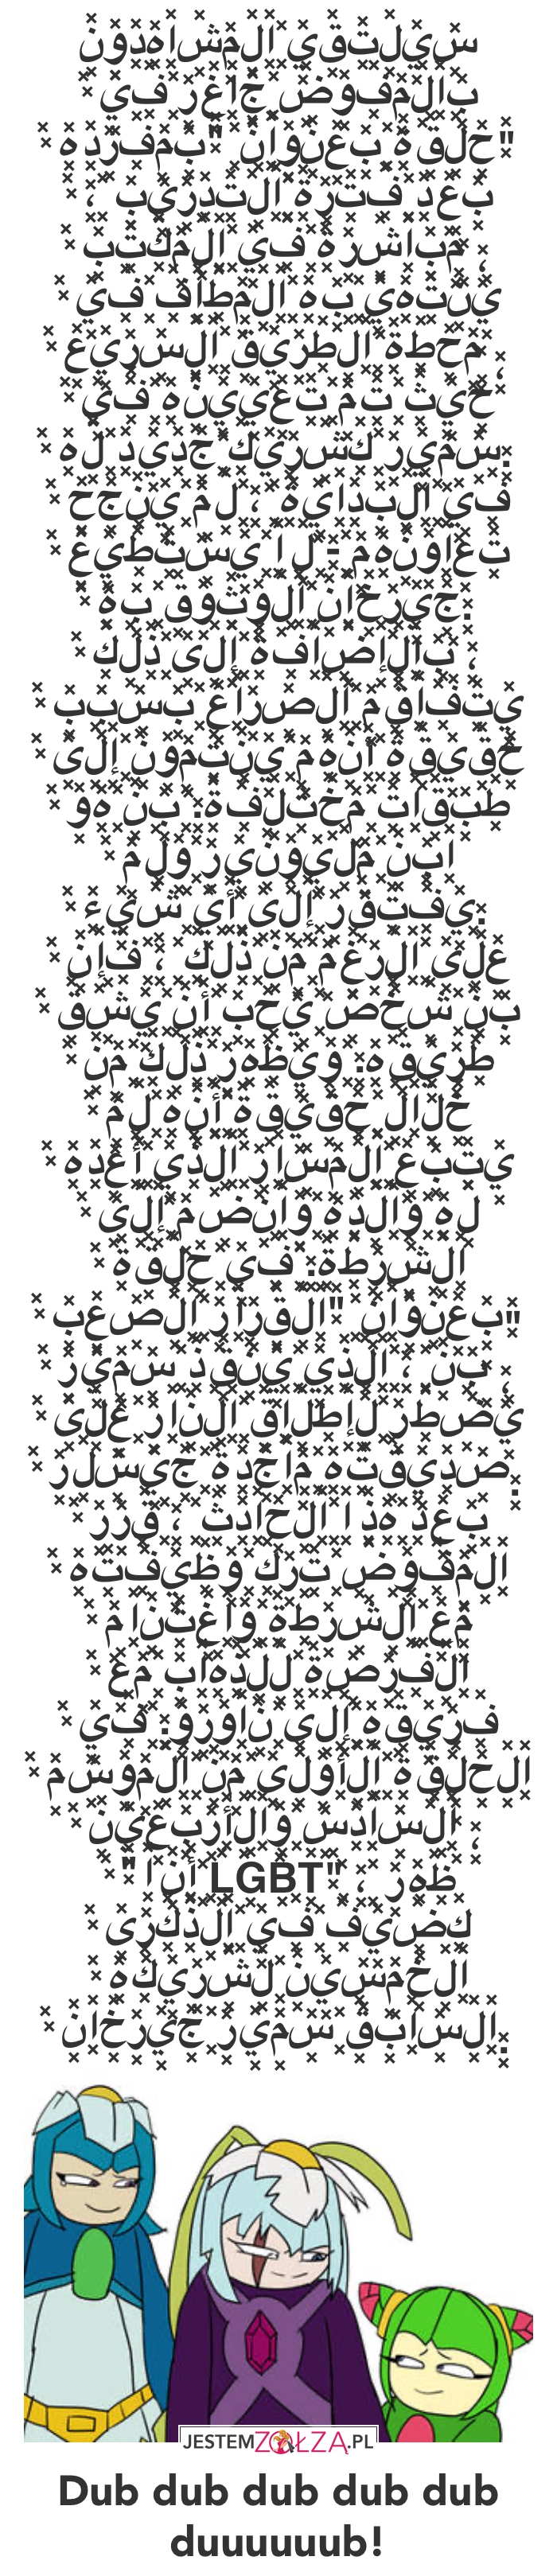 سيلتقي المشاهدون
بالمفوض جاغر في
حلقة بعنوان "بمفرده"
بعد فترة التدريب ،
مباشرة في المكتب ،
ينتهي به المطاف في
محطة الطريق السريع ،
حيث تم تعيينه في
سمير كشريك جديد له.
في البداية ، لم ينجح
تعاونهم - لا يستطيع
جيرخان الوثوق به.
بالإضافة إلى ذلك ،
يتفاقم الصراع بسبب
حقيقة أنهم ينتمون إلى
طبقات مختلفة. بن هو
ابن مليونير ولم
يفتقر إلى أي شيء.
على الرغم من ذلك ، فإن
بن شخص يحب أن يشق
طريقه. ويظهر ذلك من
خلال حقيقة أنه لم
يتبع المسار الذي أعده
له والده وانضم إلى
الشرطة. في حلقة
بعنوان "القرار الصعب"
، بن ، الذي ينقذ سمير
يضطر لإطلاق النار على
صديقته ماجدة جيسلر.
بعد هذا الحادث ، قرر
المفوض ترك وظيفته
مع الشرطة واغتنام
الفرصة للذهاب مع
فريقه إلى ناورو. في
الحلقة الأولى من الموسم
السادس والأربعين ،
"أنا LGBT" ، ظهر
كضيف في الذكرى
الخمسين لشريكه
السابق سمير جيرخان.
JESTEMZOŁZA.PL
Dub dub dub dub dub
duuuuuub!